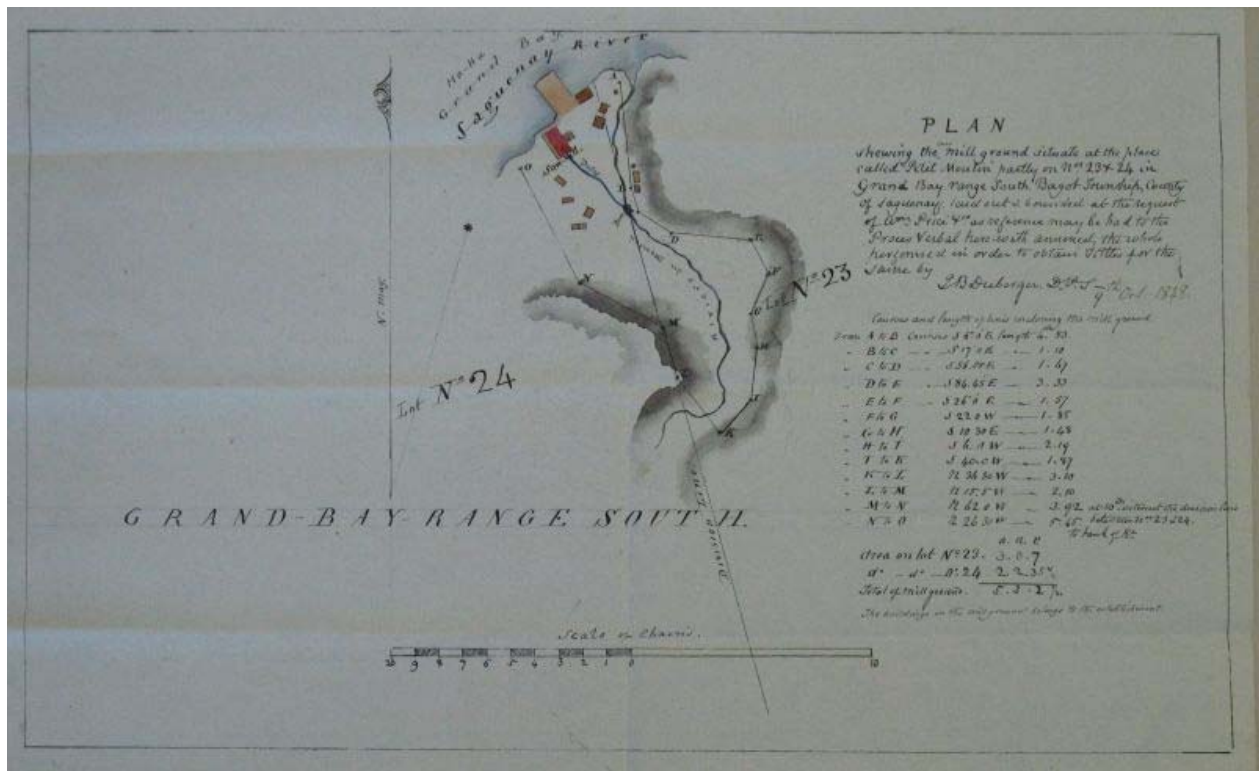 Ha-Ha
Grand Bay
Saguenay River
PLAN
shewing the mill ground situate at the place
called Petit Moulin partly on Nos 23 & 24 in
Grand Bay range South Bagot Township, County
of Saguenay, laid out & bounded at the request
of Wm Price as reference may be had to the
Proces Verbal herewith annexed, the whole
performed in order to obtain Titles for the
same by
9th Oct. 1848.
Courses and length of lines enclosing the mill ground
From A to B Courses length
" B to C " S 17 0 E " 1.10
" C to D "
" D to E " S 86.45 E " 3.33
" E to F " S 26 0 E " 1.57
" F to G S 22 0 W " 1.85
" G to H S 10 30 E " 1.48
" H to I W " 2.19
" I to K S 40.0 W " 1.87
" K to L N 36 30 W " 3.10
" L to M N 15.5 W " 2.10
" M to N N 62 0 W " 3.92
" N to O N 26 30 W " 5.65
between Nos 23 & 24
to bank of Rr
a. r. p
Area on lot No 23. 3.0.7
do - do - No 24 2.2.35
Total of mill ground. 5.3.2 1/2
The buildings on the mill ground belong to the establishment
N. mag.
Lot No 23
Lot No 24
GRAND-BAY-RANGE SOUTH.
Division Line
Scale of Chains.
10 9 8 7 6 5 4 3 2 1 0 10